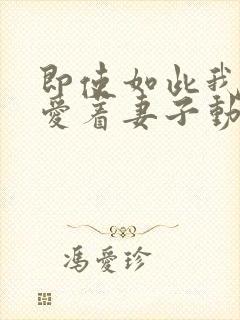 即使如此我
愛着妻子動
馮愛珍